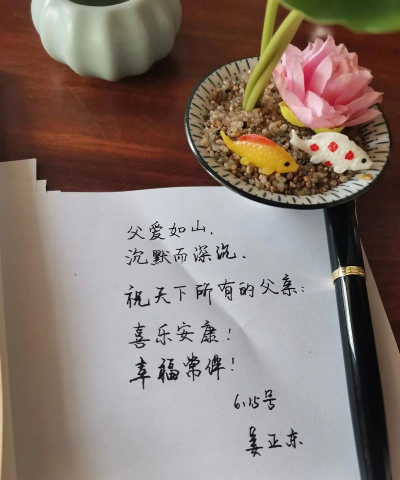 父爱如山，
沉默而深沉．
祝天下所有的父亲：
喜乐安康！
幸福常伴！
6.15号
姜正东